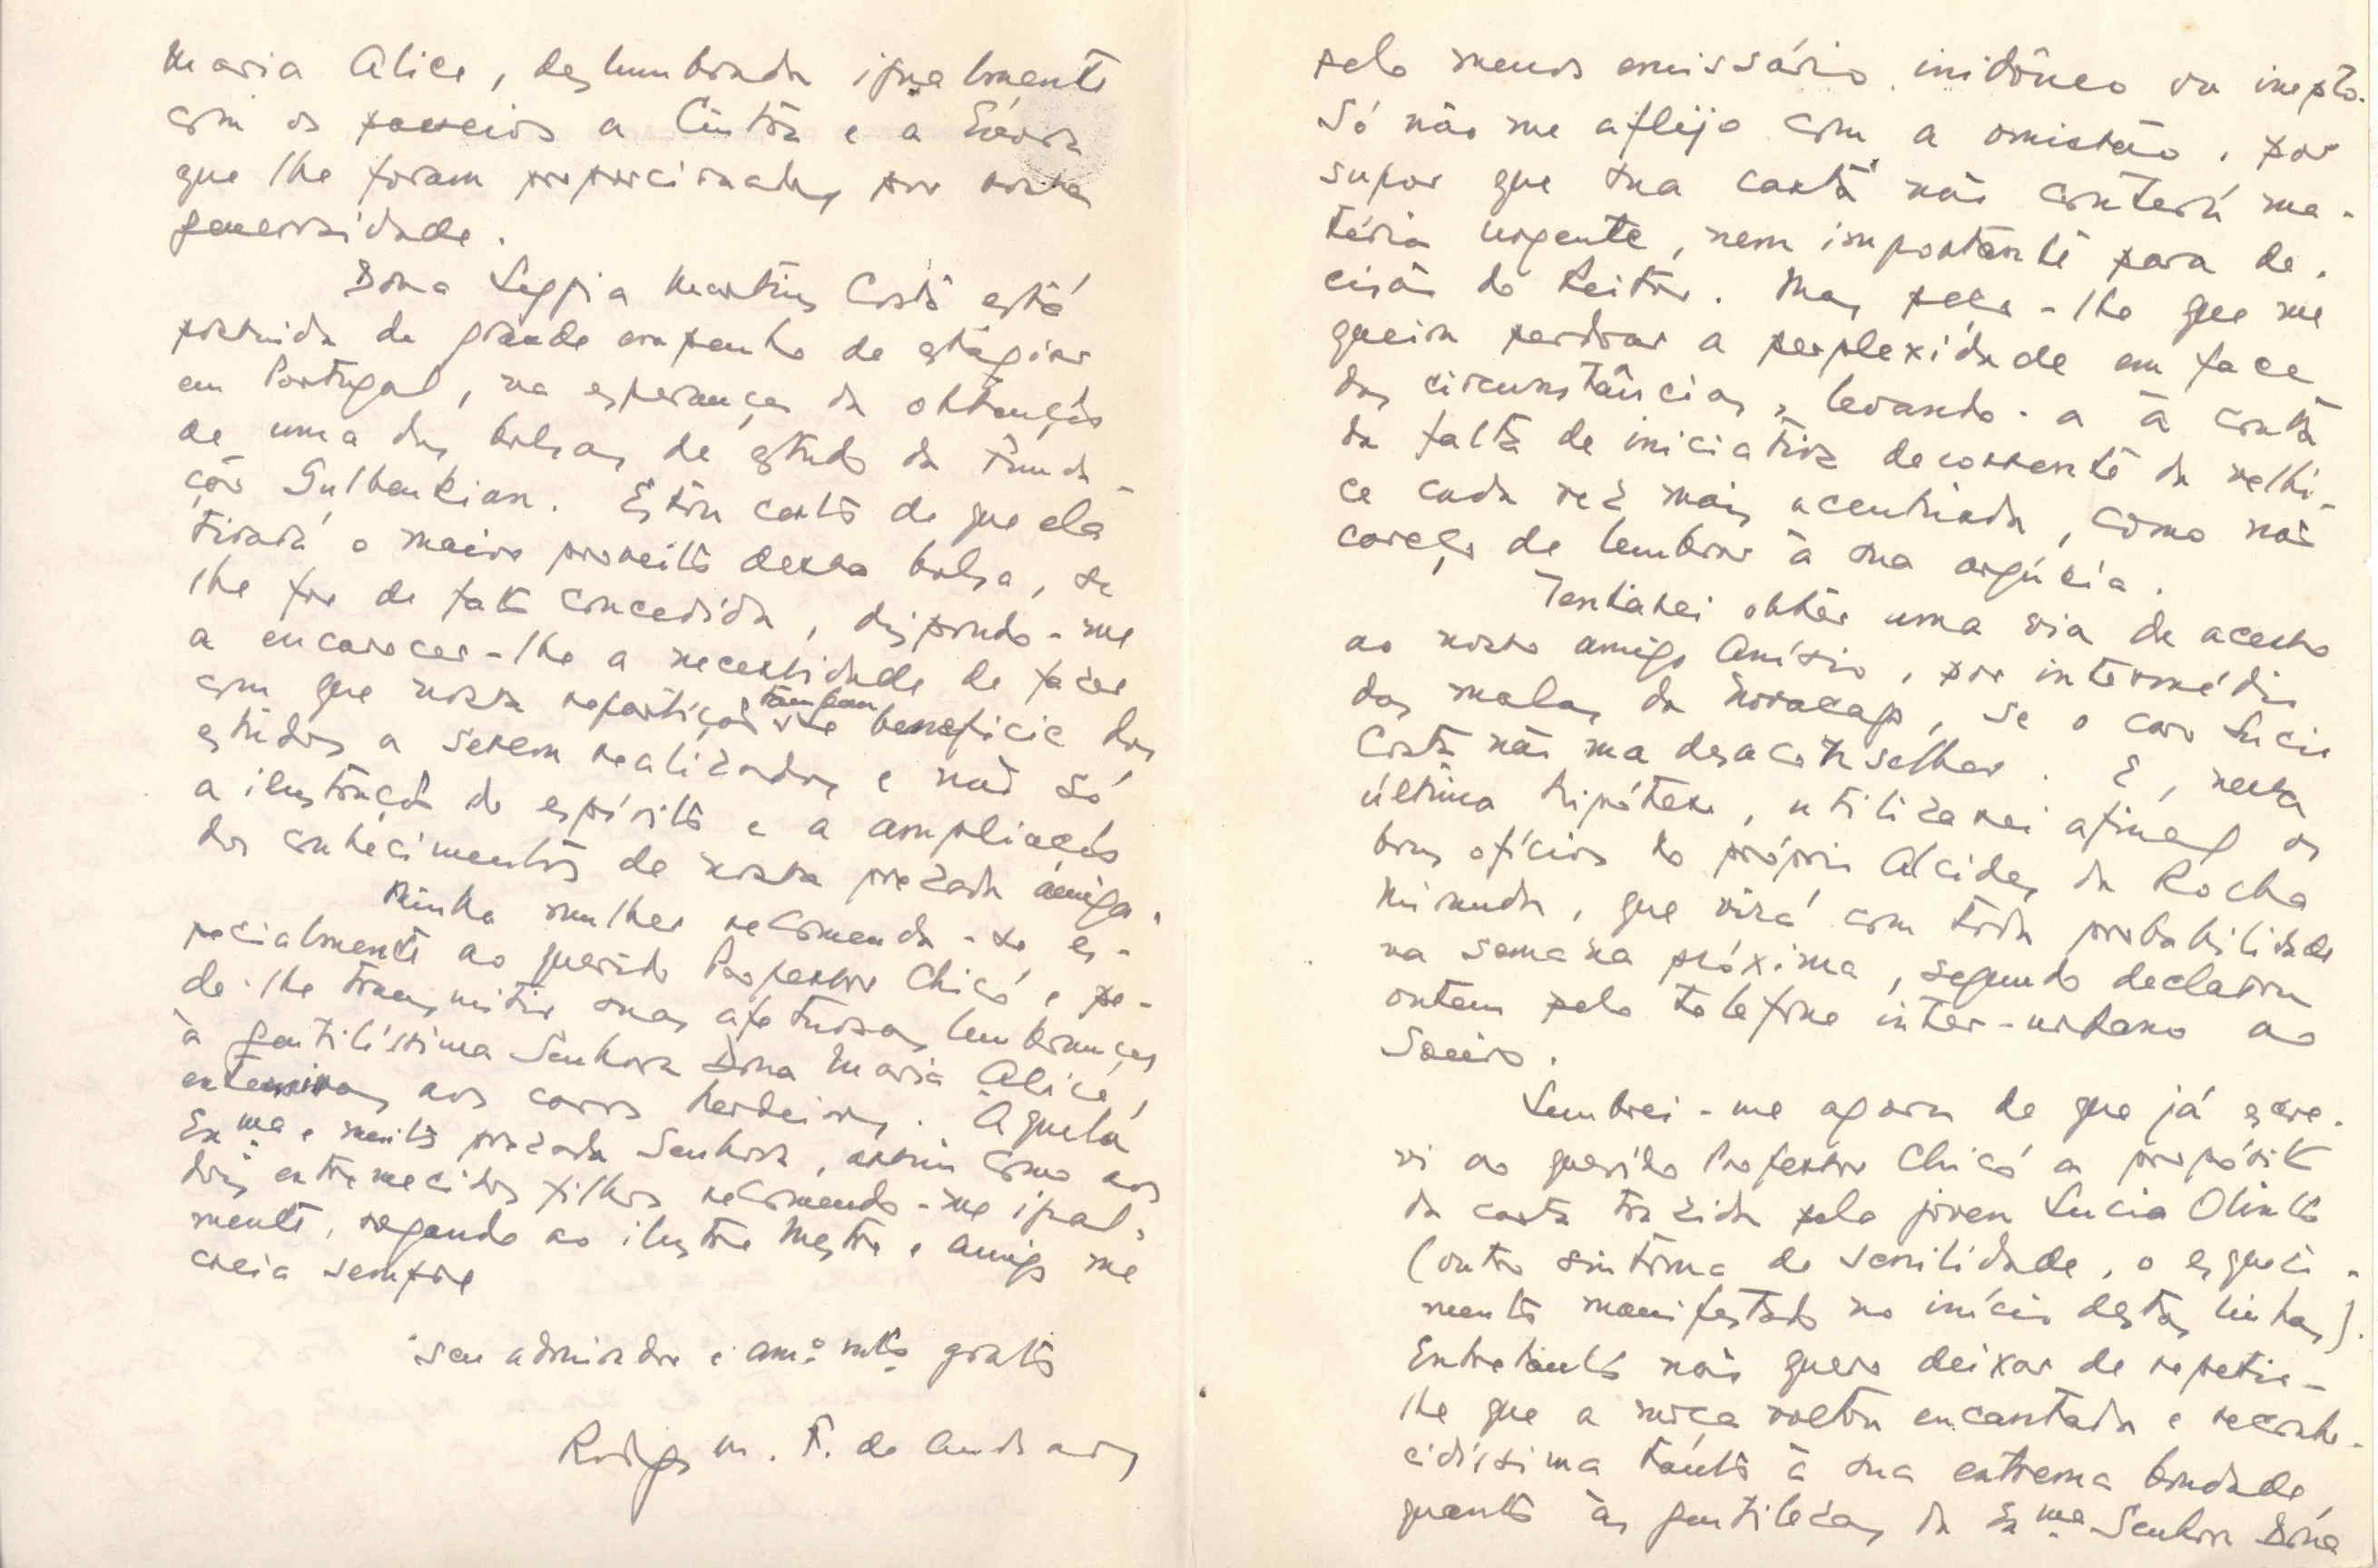 pelo menos emissário inidôneo ou inepto.
Só não me aflijo com a omissão, por
supor que sua carta não conterá ma-
téria urgente, nem importante para de-
cisão do Reitor. Mas peço-lhe que me
queira perdoar a perplexidade em face
das circunstâncias, levando-a à conta
da falta de iniciativa decorrente da velhi-
ce cada vez mais acentuada, como não
careço de lembrar à sua argúcia.
Tentarei obter uma via de acesso
ao nosso amigo Anísio, por intermédio
das malas da Novacap, se o caro Lucio
Costa não ma desaconselhar. E, nessa
última hipótese, utilizarei afinal os
bons ofícios do próprio Alcides da Rocha
Miranda, que virá com toda probabilidade
na semana próxima, segundo declarou
ontem pelo telefone inter-urbano ao
Soeiro.
Lembrei-me agora de que já escre-
vi ao querido Professor Chicó a propósito
da carta trazida pela jovem Lucia Olinto
(outro sintoma de senilidade, o esqueci-
mento manifestado no início destas linhas).
Entretanto não quero deixar de repetir-
lhe que a moça voltou encantada e reconhe-
cidíssima tanto à sua extrema bondade,
quanto às gentilezas da Exma Senhora Dona
Maria Alice, deslumbrada igualmente
com os passeios a Cintra e a Évora
que lhe foram proporcionados por vossa
generosidade.
Dona Lygia Martins Costa está
possuida de grande empenho de estagiar
em Portugal, na esperança da obtenção
de uma das bolsas de estudo da Funda-
ção Gulbenkian. Estou certo de que ela
tirará o maior proveito dessa bolsa, se
lhe for de fato concedida, dispondo-me
a encarecer-lhe a necessidade de fazer
com que nossa repartição também se beneficie dos
estudos a serem realizados e não só
a ilustração do espírito e a ampliação
dos conhecimentos de nossa prezada amiga.
Minha mulher recomenda-se es-
pecialmente ao querido Professor Chicó e pe-
de-lhe transmitir suas afetuosas lembranças
à gentilíssima Senhora Dona Maria Alice,
extensivas aos caros herdeiros. Àquela
Exma e muito prezada Senhora, assim como aos
dois estremecidos filhos recomendo-me igual-
mente, rogando ao ilustre Mestre e amigo me
creia sempre
seu admirador e amº mtº grato
Rodrigo M. F. de Andrade